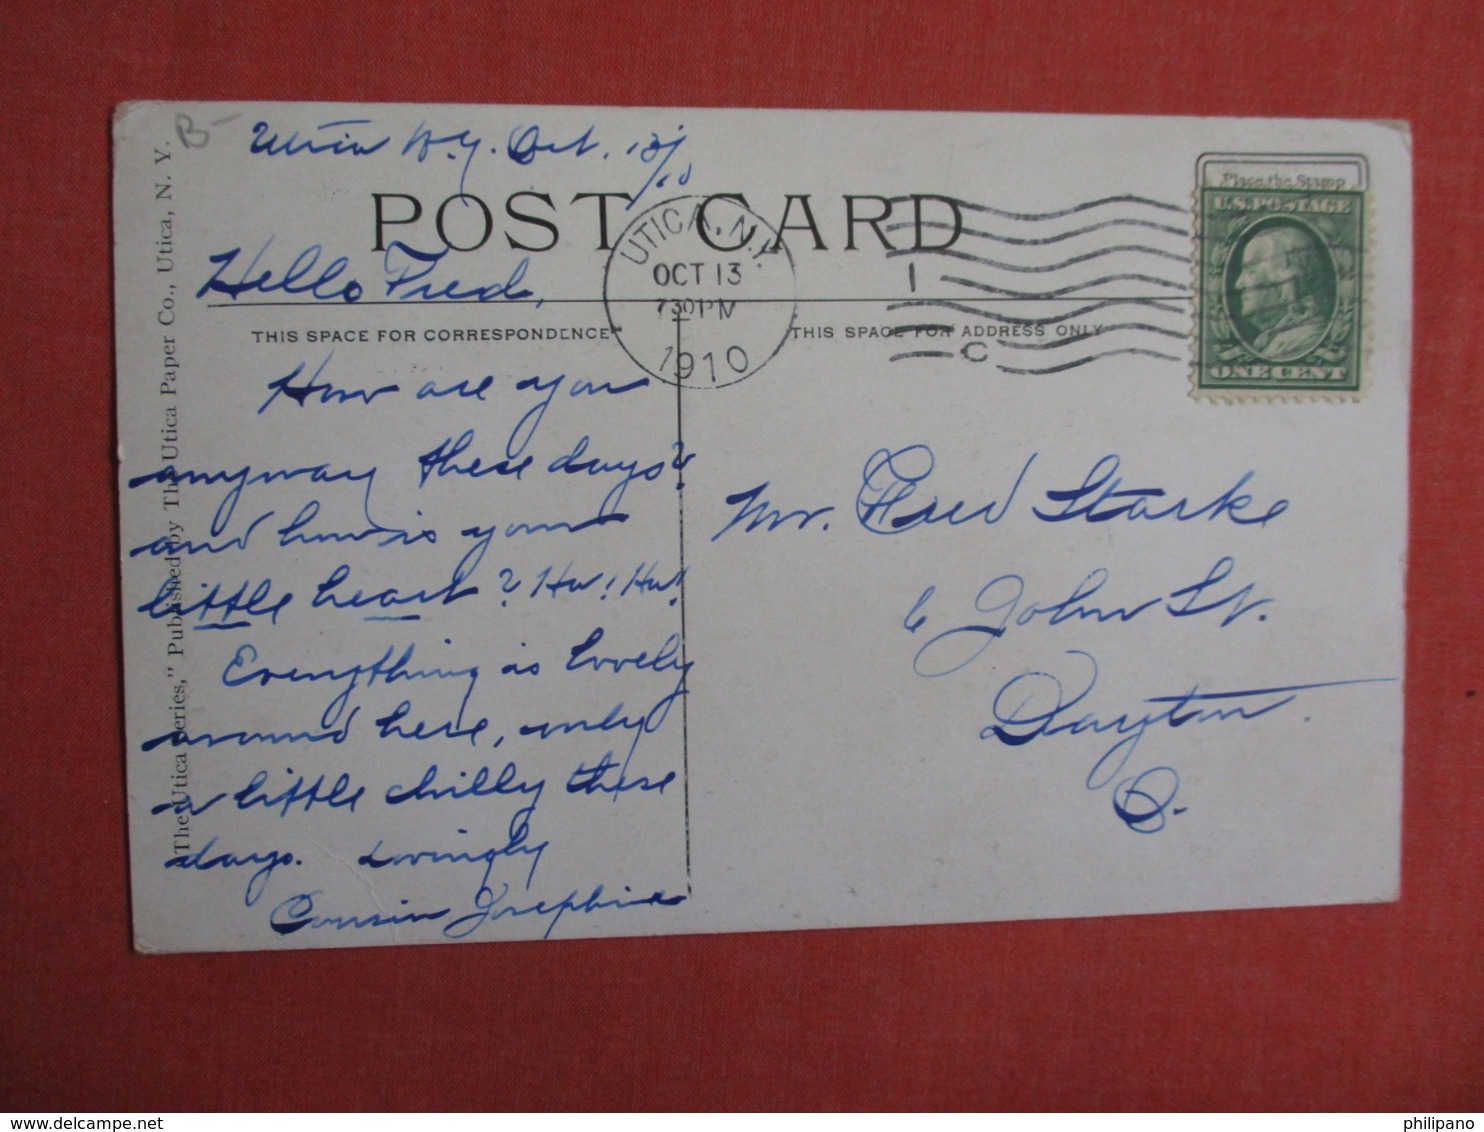 B-
Utica N.Y. Oct. 13/10
POST CARD
Place the Stamp
U.S. POSTAGE
ONE CENT
UTICA, N.Y.
OCT 13
7 30 PM
1910
1
C
Hello Fred,
THIS SPACE FOR CORRESPONDENCE
THIS SPACE FOR ADDRESS ONLY
How are you
anyway these days?
and how is your
little heart? Ha! Ha!
Everything is lovely
around here, only
a little chilly these
days. Lovingly
Cousin Josephine
Mr. Fred Starke
6 John St.
Dayton
O.
"The Utica Series," Published by The Utica Paper Co., Utica, N. Y.
philipano